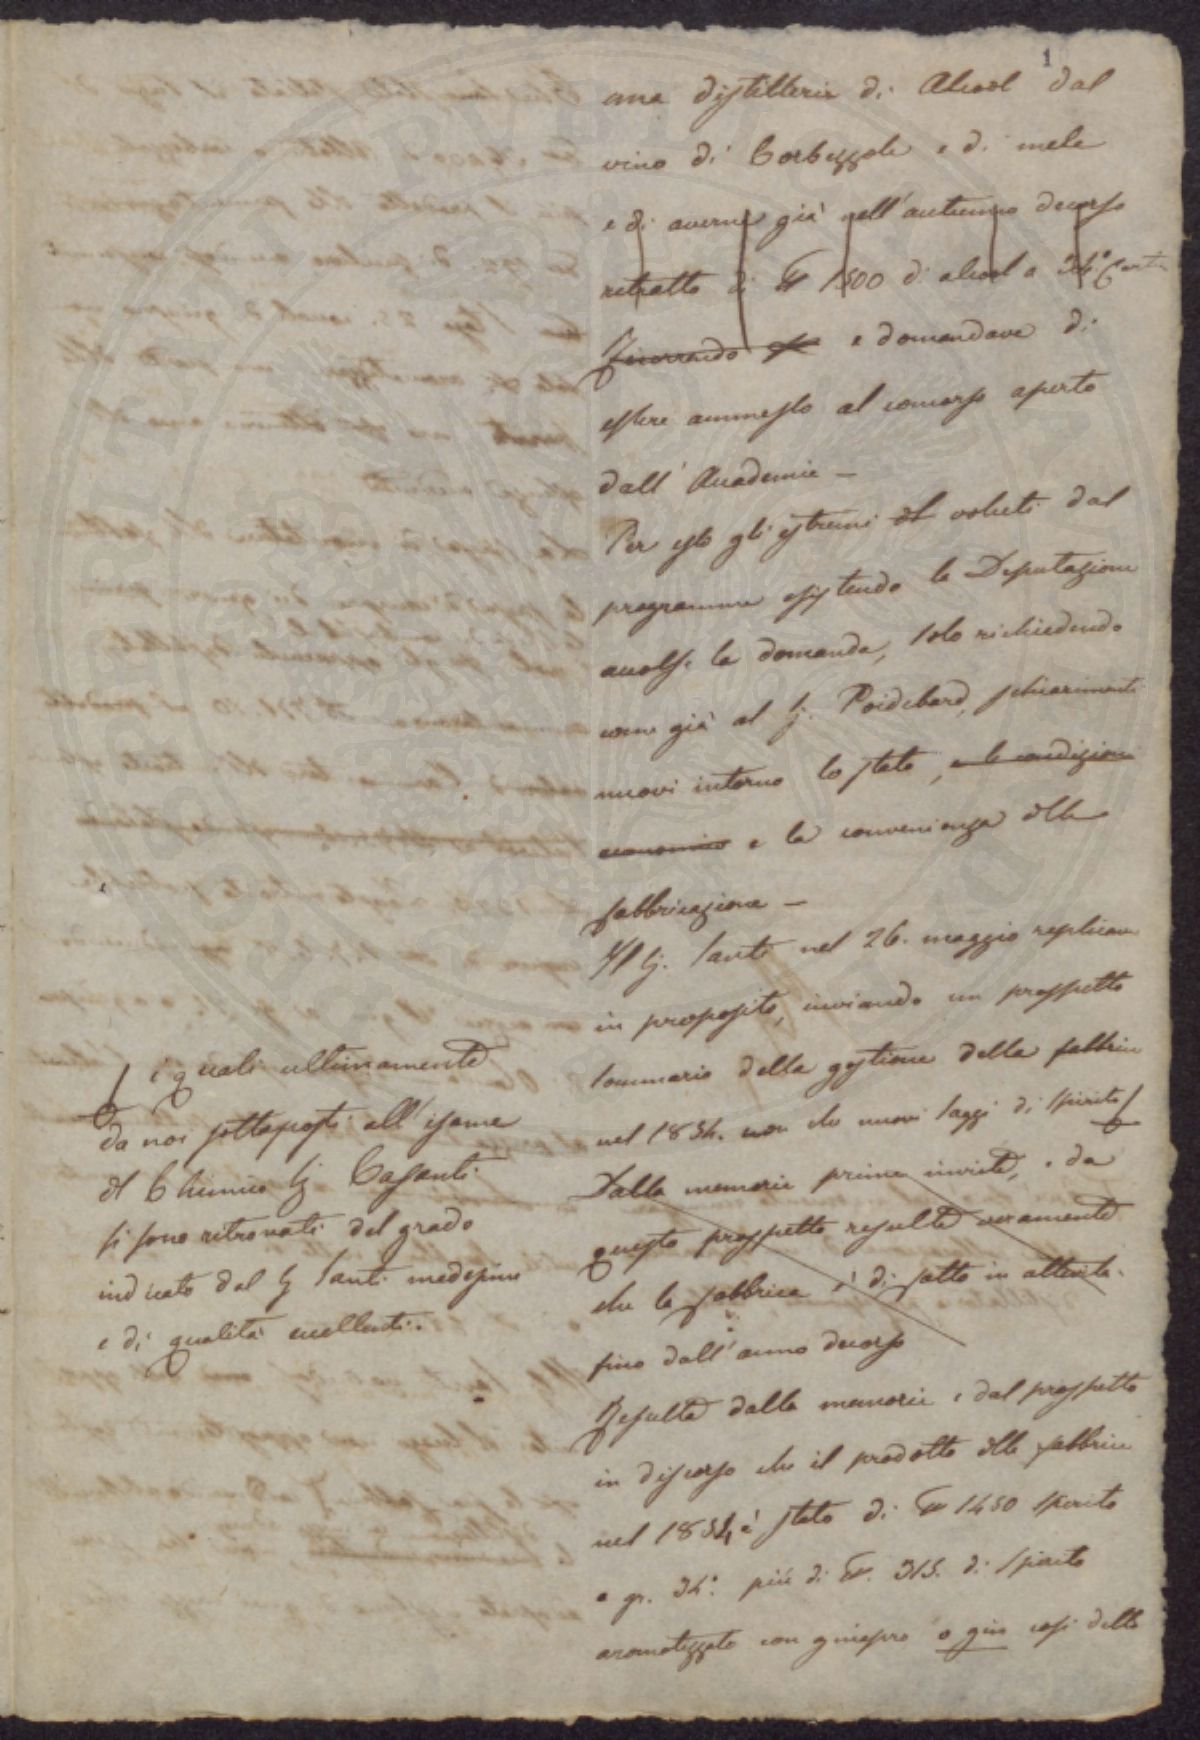 1
una distilleria di Alcool dal
vino di Corbezzole e di mele
e di averne già nell'autunno decorso
retratto di 1500 di alcool a 34°
Ricorrendo e domandava di
essere ammesso al concorso aperto
dall'Accademia —
Per esso gli estremi del voluti dal
programma esistendo la Deputazione
accolse la domanda, solo richiedendo
come già al Sig. Poidebard, schiarimenti
nuovi intorno lo stato, e le condizioni
economiche e la convenienza della
fabbricazione —
Il Sig. Santi nel 26. maggio replicava
in proposito, inviando un prospetto
sommario della gestione della fabbrica
nel 1854. non che nuovi saggi di spirito
Dalla memoria prima inviata, e da
questo prospetto resulta veramente
che la fabbrica è di fatto in attività
fino dall'anno decorso
Resulta dalla memoria e dal prospetto
in discorso che il prodotto della fabbrica
nel 1854 è stato di 1450 spirito
a gr. 34°. più di 315. di spirito
aromatizzato con ginepro o gin così detto
i quali ultimamente
da noi sottoposti all'esame
del Chimico Sig Casanti
si sono ritrovati del grado
indicato dal Sig Santi medesimo
e di qualità eccellenti.